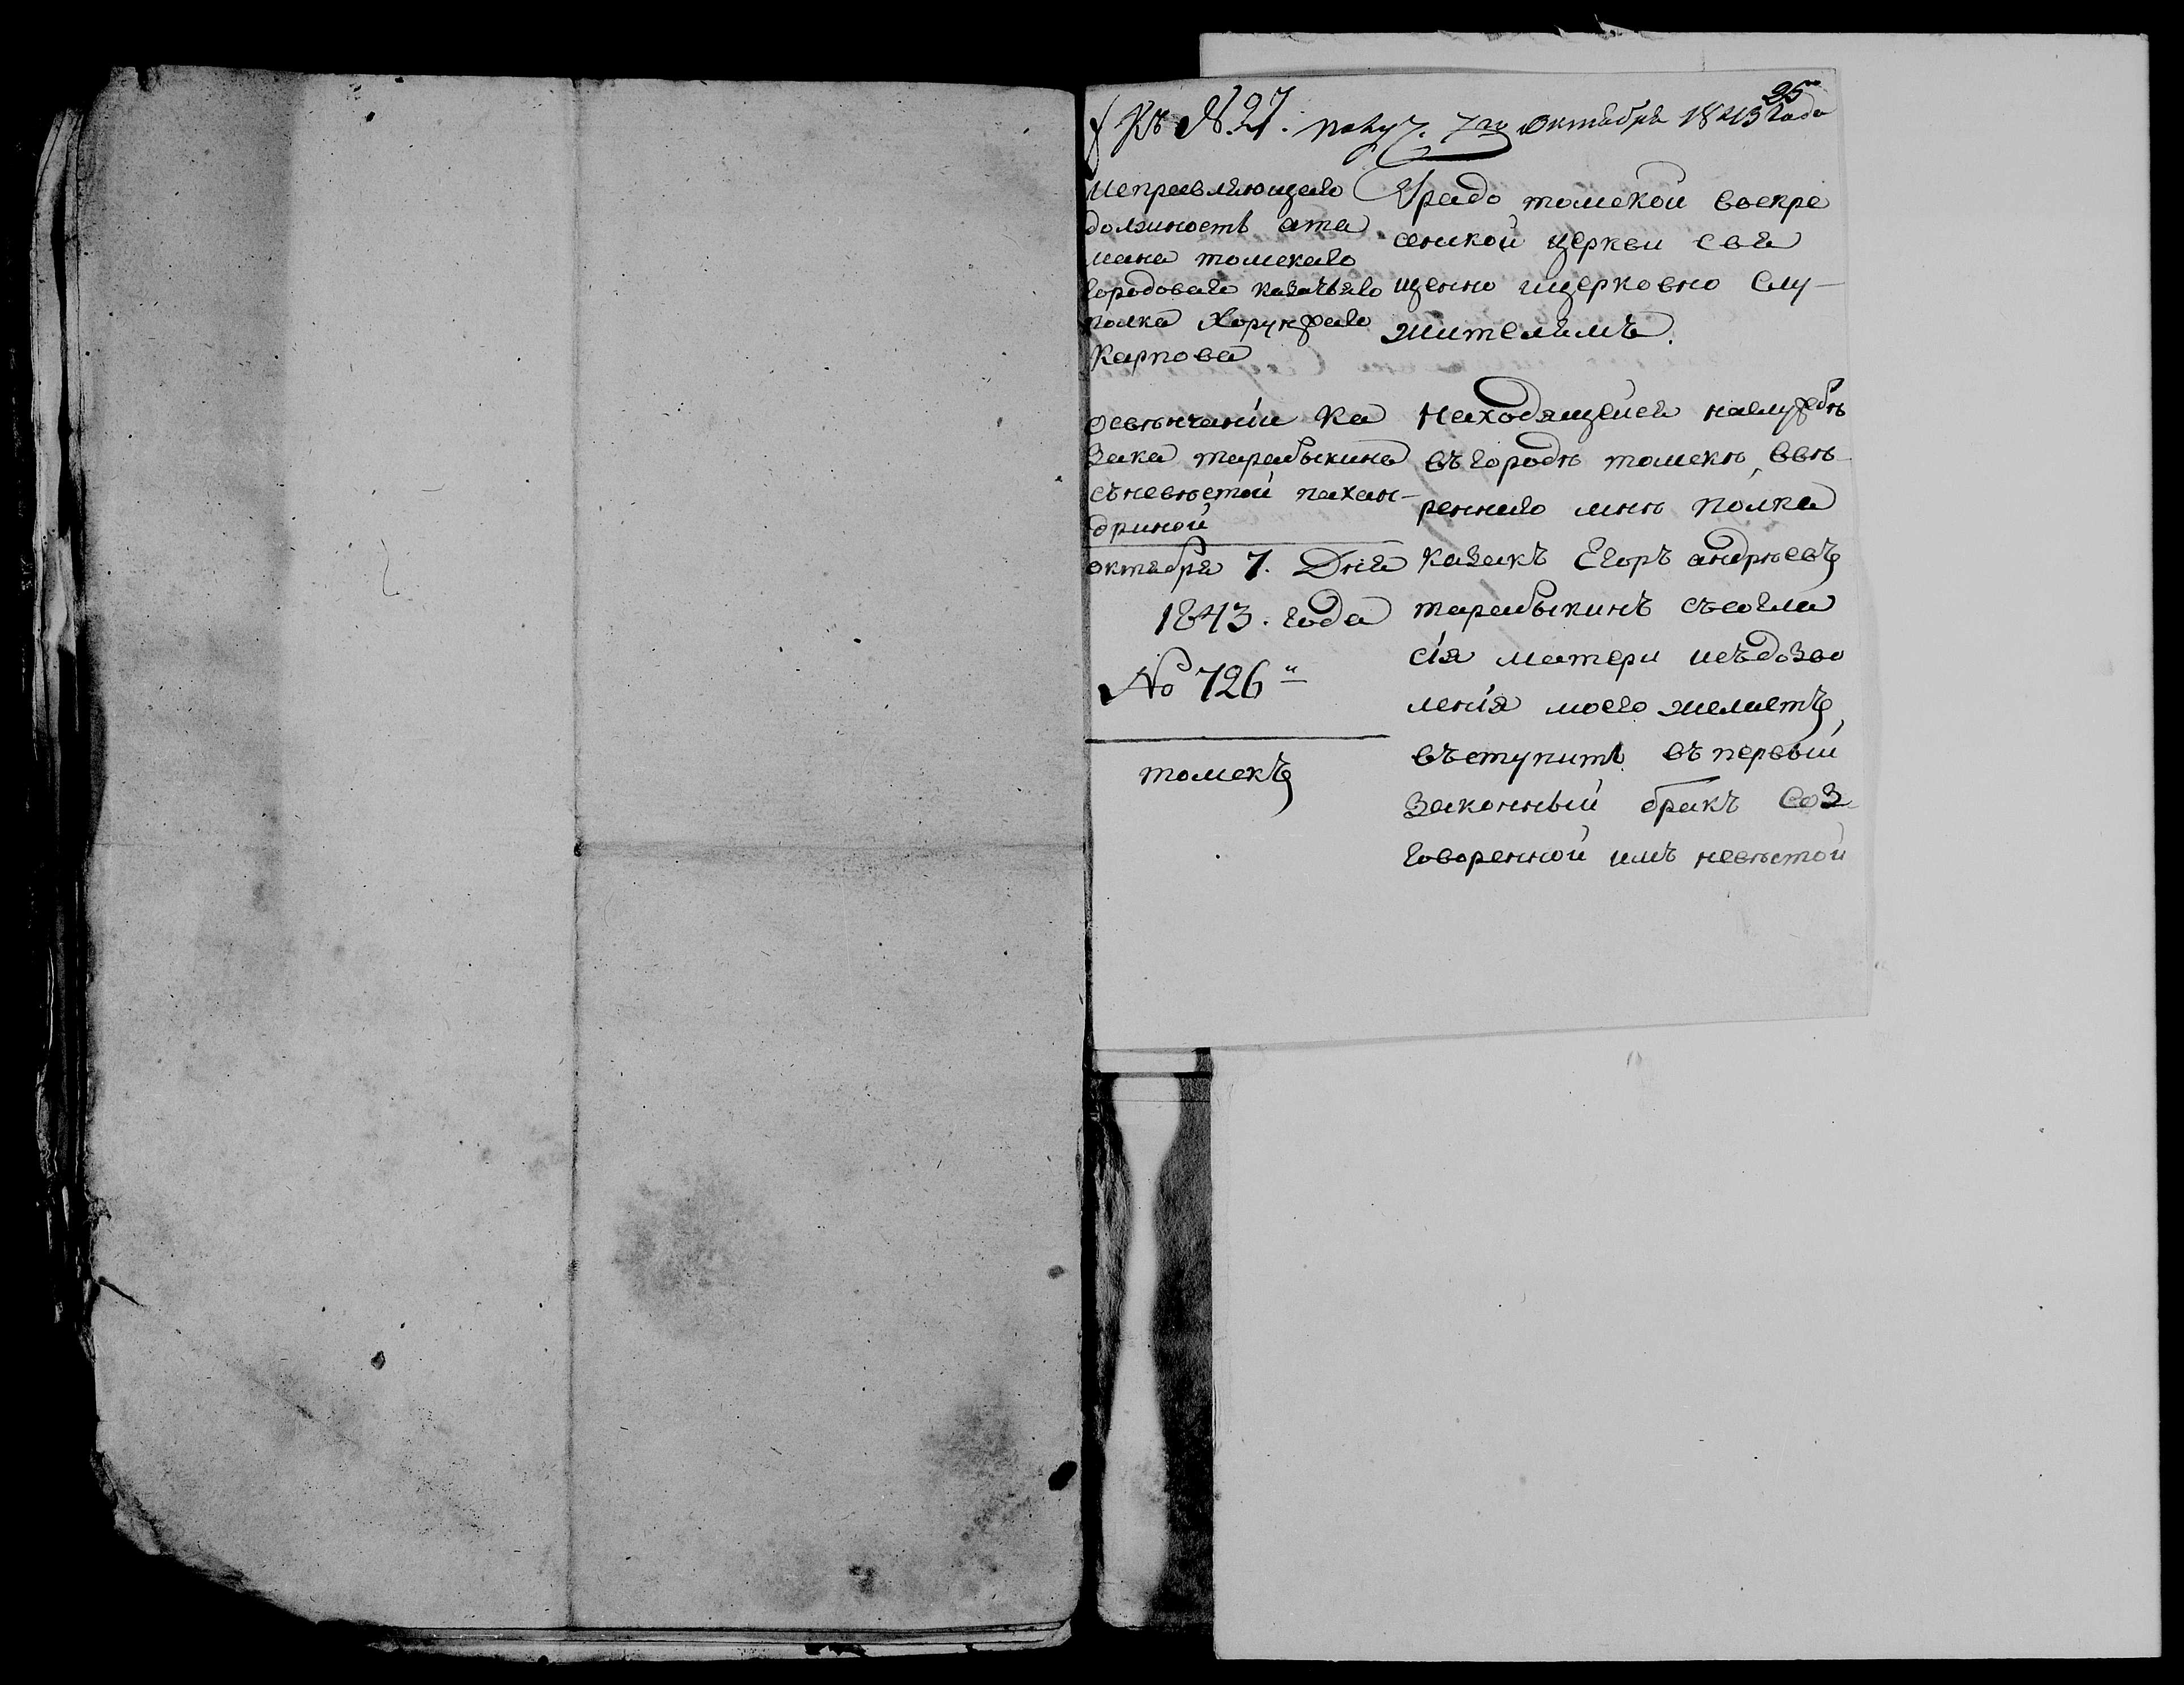 25
Къ №27. получ. 7го Октября 1843 года
Исправляющаго
должность ата
мана томскаго
городоваго казачьяго
полка Хорунжаго
Карпова
овѣнчаніи Ка
зака тарабыкина
съневѣстой пахан-
дриной
октября 7. Дня
1843. года
№ 726
томскъ
Градо томской воскре
сенской церкви свя
щенно ицерковно Слу-
жителямъ.
Находящейся наслужбѣ
въ городѣ томскѣ, ввѣ-
реннаго мнѣ полка
казакъ Егоръ андрѣевъ
тарабыкинъ съсогла
сія матери исъдозво
ленія моего желаетъ,
въступить въ первый
законный бракъ Соз-
говоренной имъ невѣстой